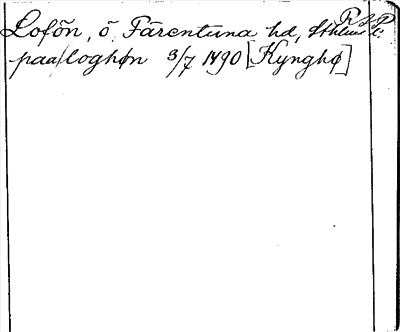 Lofön, ö, Färentuna hd, Sthlms l.
RAP
paa loghøn 3/7 1490 [Kynghø]